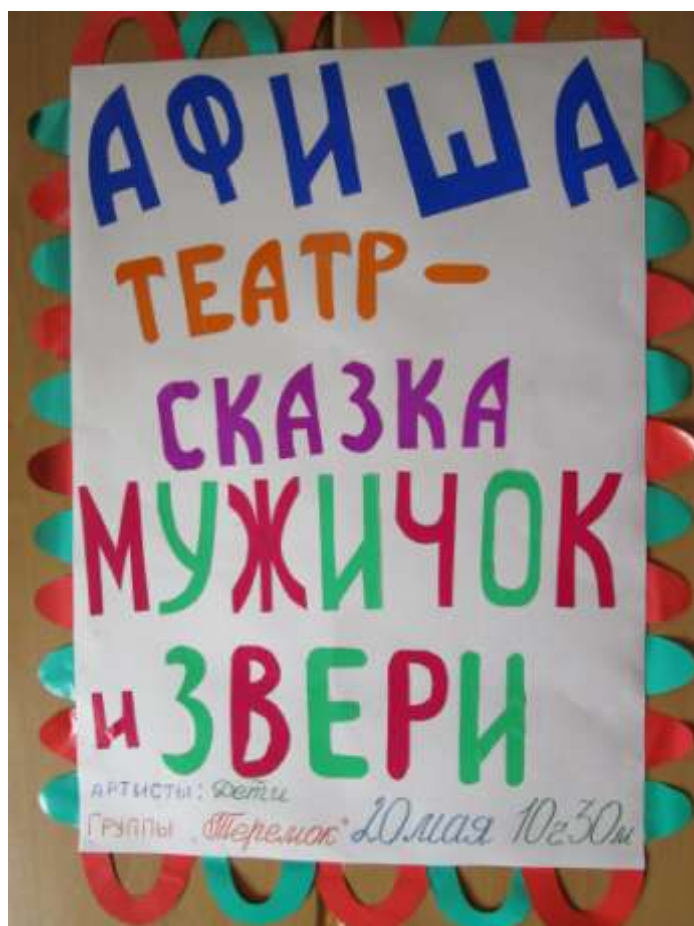 АФИША
ТЕАТР-
СКАЗКА
МУЖИЧОК
и ЗВЕРИ
АРТИСТЫ: Дети
ГРУППЫ "Теремок" 20 мая 10ч30м